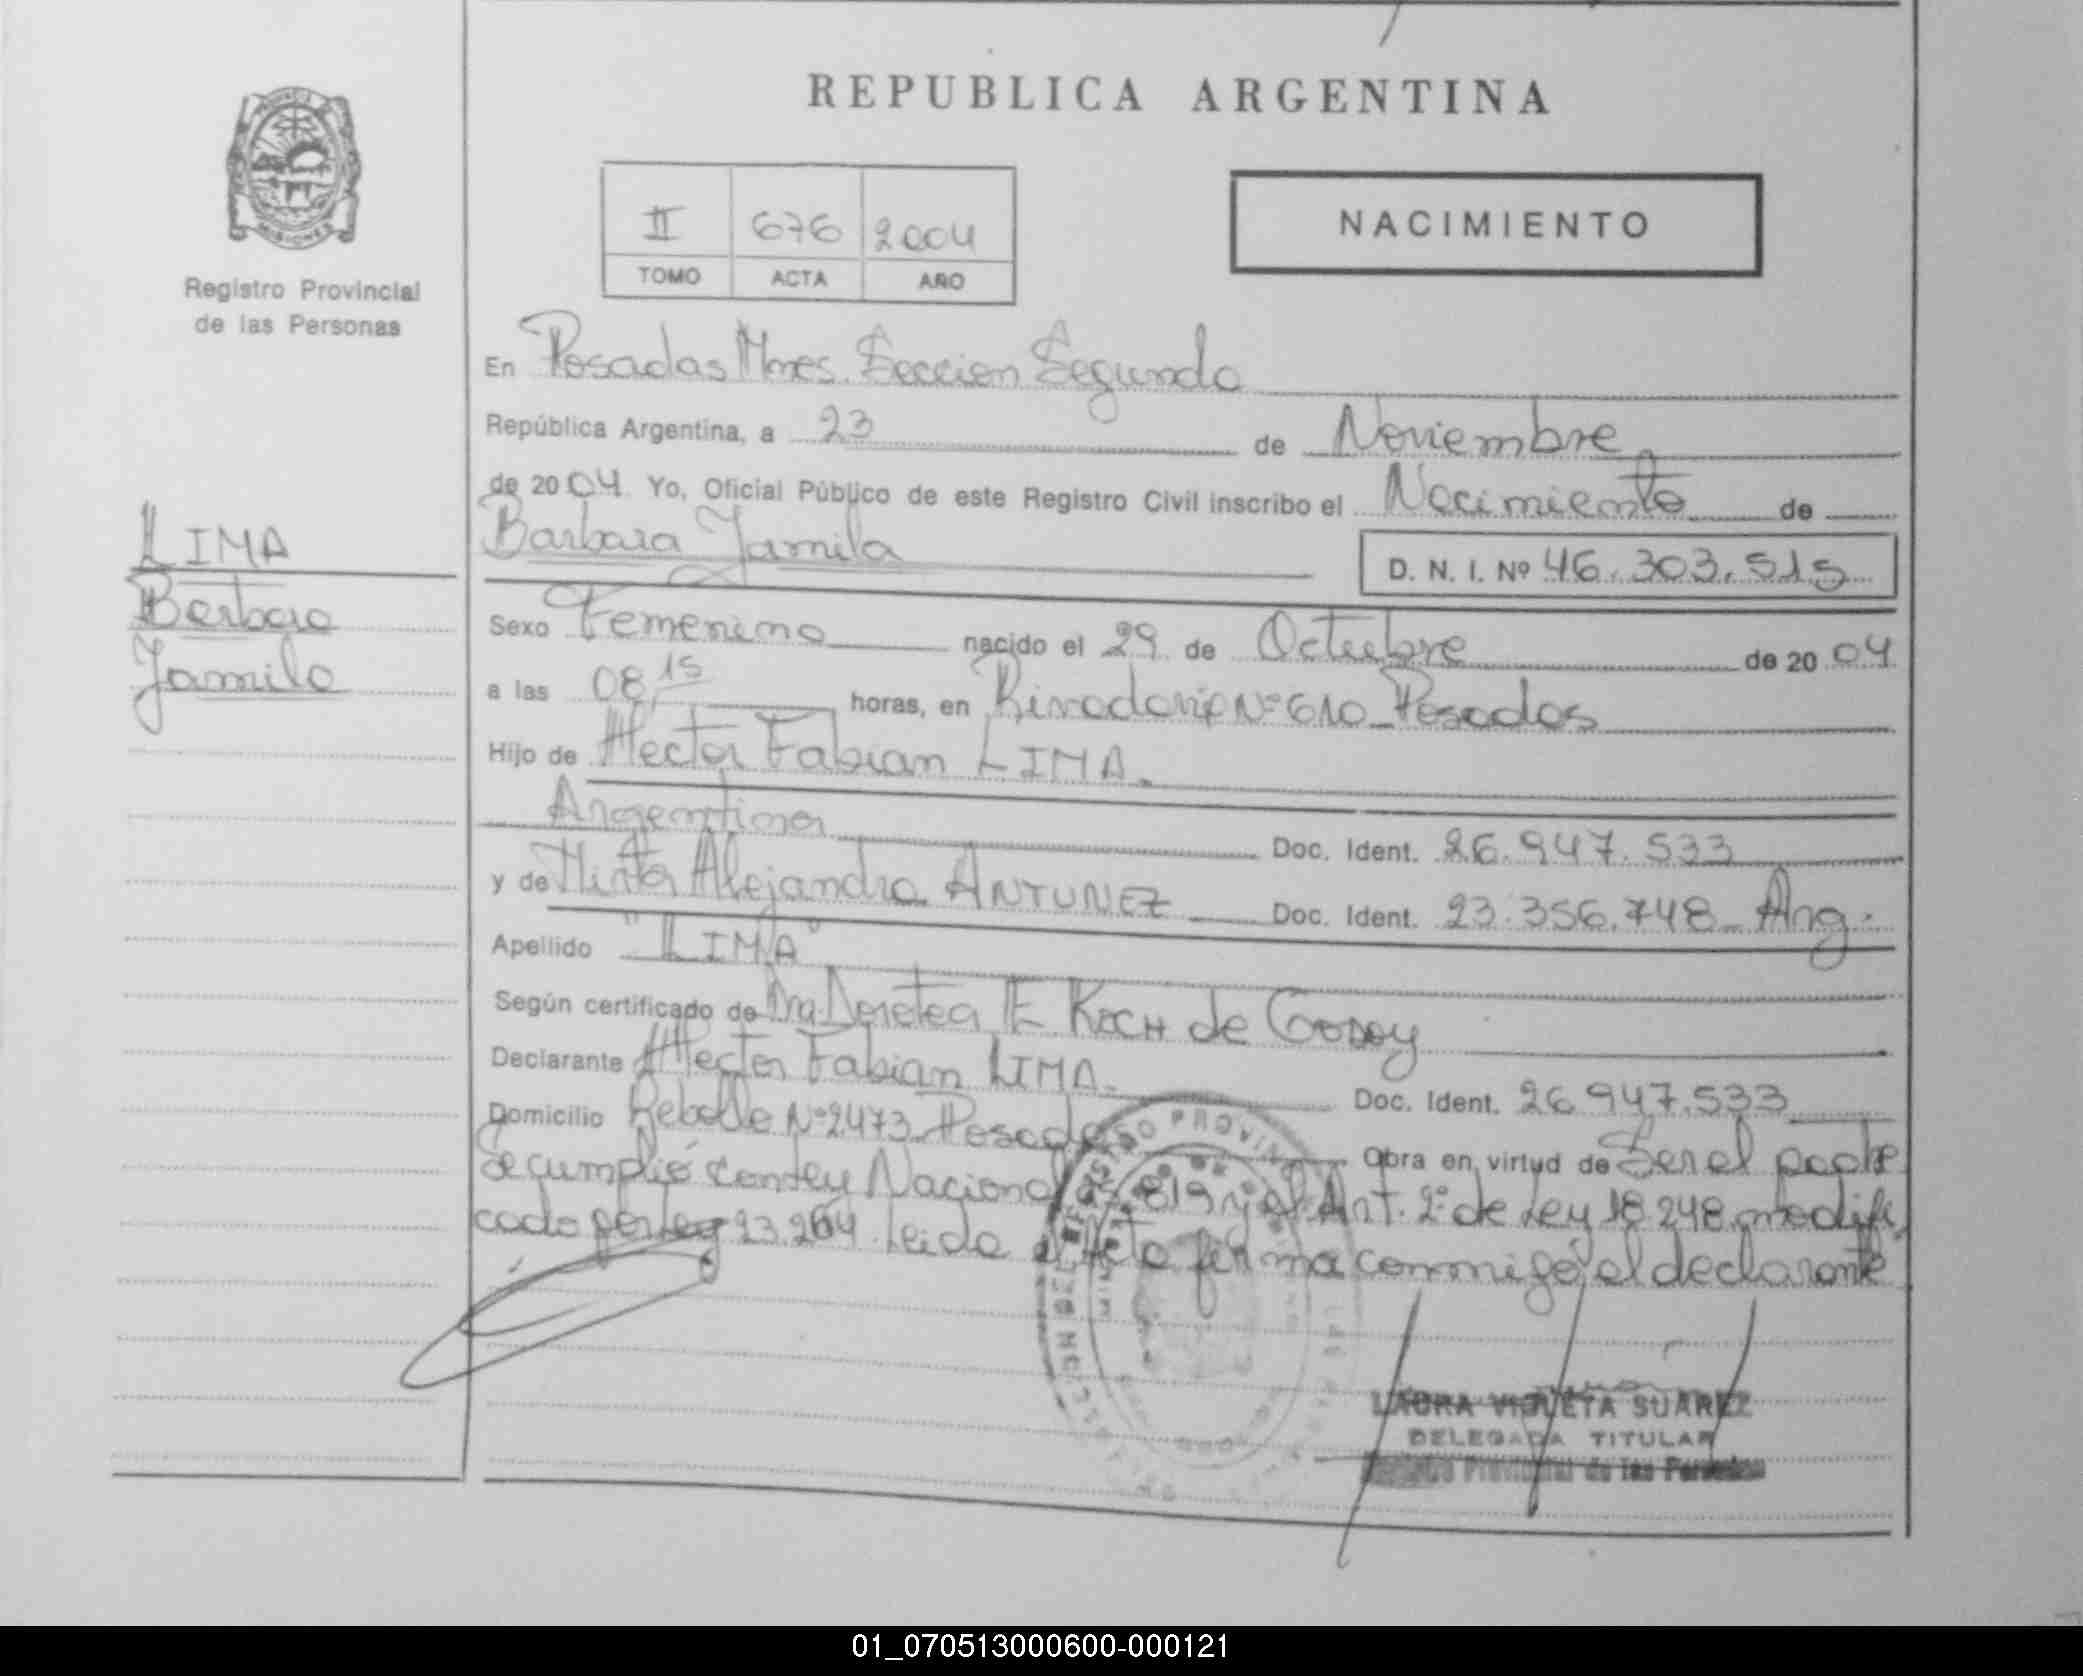 REPUBLICA ARGENTINA
MISIONES
Registro Provincial
de las Personas
II 676 2004
TOMO ACTA AÑO
NACIMIENTO
En Posadas Mnes. Seccion Segunda
República Argentina, a 23 de Noviembre
de 2004. Yo, Oficial Público de este Registro Civil inscribo el Nacimiento de
Barbara Jamila
D. N. I. Nº 46.303.515
LIMA
Barbara
Jamila
Sexo Femenino nacido el 29 de Octubre de 2004
a las 08,15 horas, en Rivadavia Nº 610 Posadas
Hijo de Hector Fabian LIMA.
Argentina Doc. Ident. 26.947.533
y de Mirta Alejandra ANTUNEZ Doc. Ident. 23.356.748 Arg.
Apellido "LIMA"
Según certificado de Dra. Dorotea E KOCH de GODOY
Declarante Hector Fabian LIMA. Doc. Ident. 26.947.533
Domicilio Rebollo Nº 2473 Posadas Obra en virtud de Ser el padre
Se cumplió con Ley Nacional 25.819 y el Art. 2º de Ley 18.248 modifi
cado por Ley 23.264. Leida el Acta firma conmigo el declarante
LAURA VIOLETA SUAREZ
DELEGADA TITULAR
Registro Provincial de las Personas
01_070513000600-000121